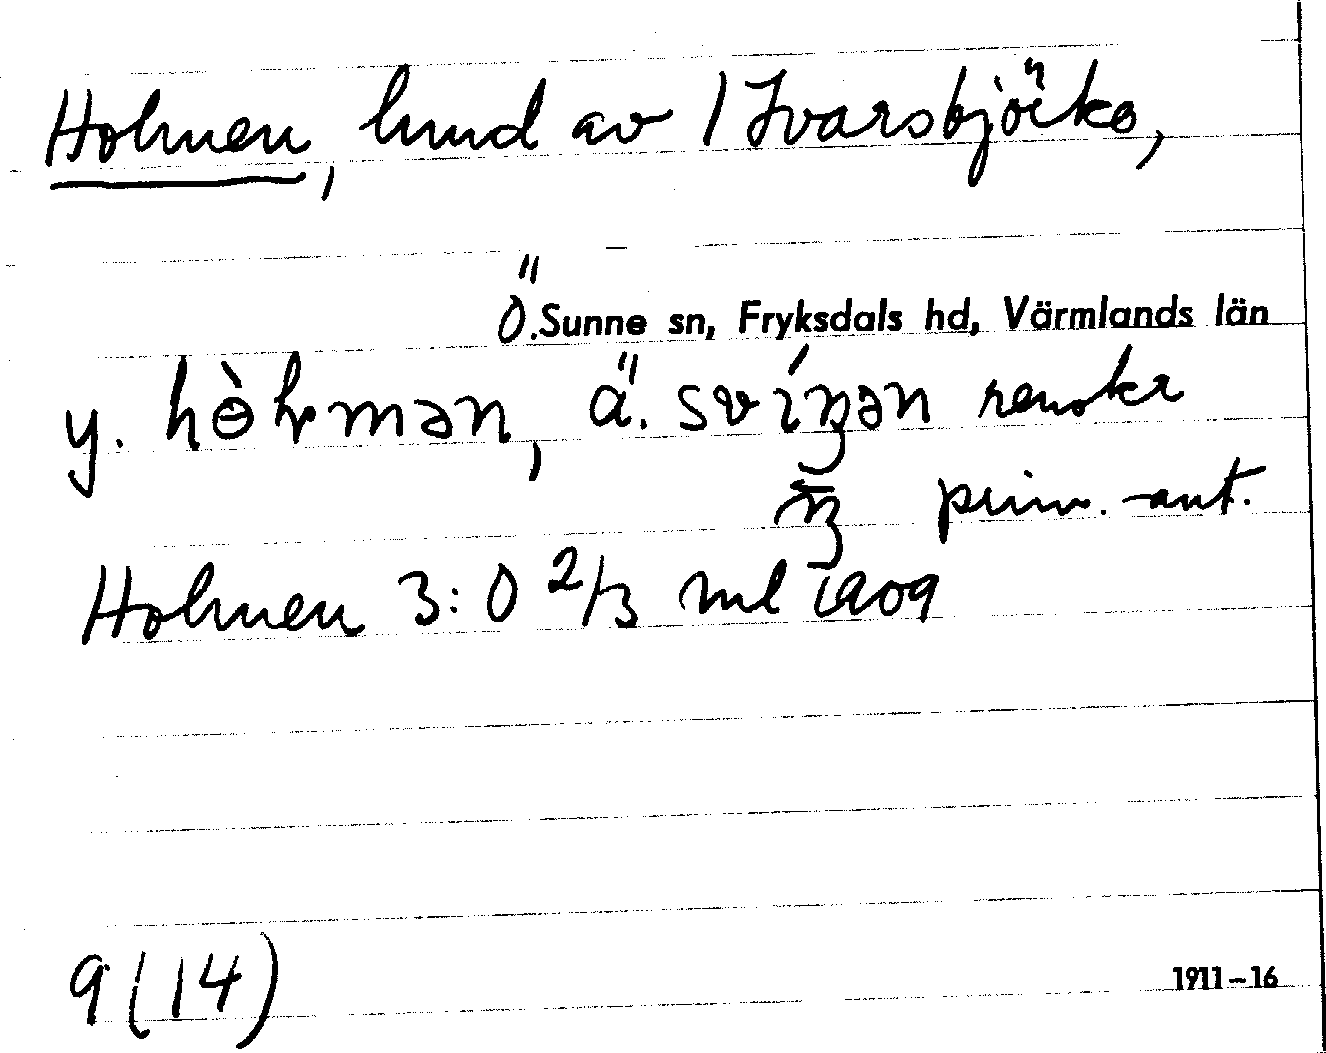 Holmen, hmd av 1 Ivarsbjörke,
Ö. Sunne sn, Fryksdals hd, Värmlands län
y. hɵ̀lmən, ä. svíŋən renskr
prim. -ant.
Holmen 3:0 2/3 mtl 1909
9(14)
1911–16